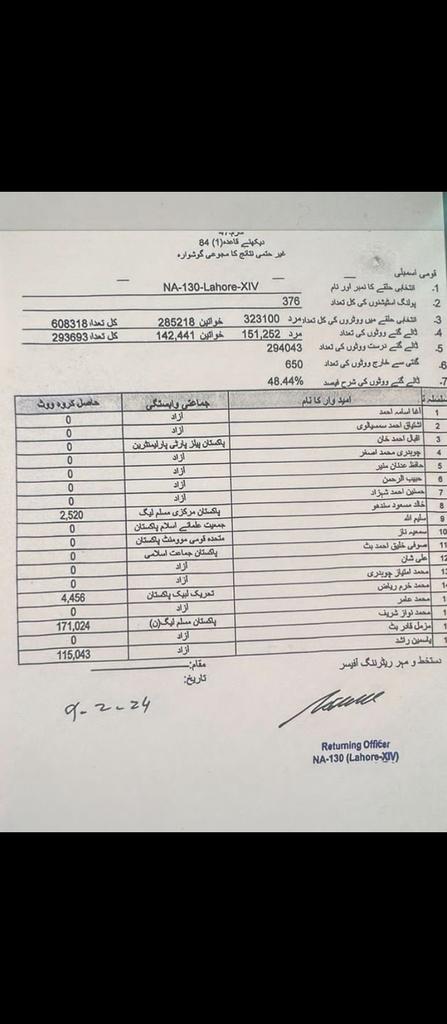 دیکھئے قاعدہ(1) 84
غیر حتمی نتائج کا مجموعی گوشوارہ
قومی اسمبلی
1. انتخابی حلقے کا نمبر اور نام NA-130-Lahore-XIV
2. پولنگ اسٹیشنوں کی کل تعداد 376
3. انتخابی حلقے میں ووٹروں کی کل تعداد مرد 323100 خواتین 285218 کل تعداد 608318
4. ڈالے گئے ووٹوں کی تعداد مرد 151,252 خواتین 142,441 کل تعداد 293693
5. ڈالے گئے درست ووٹوں کی تعداد 294043
6. گنتی سے خارج ووٹوں کی تعداد 650
7. ڈالے گئے ووٹوں کی شرح فیصد 48.44%
امیدوار کا نام جماعتی وابستگی حاصل کردہ ووٹ
1 آغا اسامہ احمد آزاد 0
2 اشتیاق احمد آزاد 0
3 اقبال احمد خان پاکستان پیپلز پارٹی پارلیمنٹیرین 0
4 چوہدری محمد اصغر آزاد 0
5 حافظ عدنان منیر آزاد 0
6 حبیب الرحمن آزاد 0
7 حسنین احمد شہزاد آزاد 0
8 خالد مسعود سندھو پاکستان مرکزی مسلم لیگ 2,520
9 سلیم اللہ جمعیت علمائے اسلام پاکستان 0
10 سمعیہ ناز متحدہ قومی موومنٹ پاکستان 0
11 صوفی خلیق احمد بٹ پاکستان جماعت اسلامی 0
12 علی شان آزاد 0
محمد امتیاز چوہدری آزاد 0
محمد خرم ریاض تحریک لبیک پاکستان 4,456
محمد عامر آزاد 0
محمد نواز شریف پاکستان مسلم لیگ(ن) 171,024
مزمل قادر بٹ آزاد 0
یاسمین راشد آزاد 115,043
دستخط و مہر ریٹرننگ آفیسر مقام:
تاریخ:
9-2-24
Returning Officer
NA-130 (Lahore-XIV)